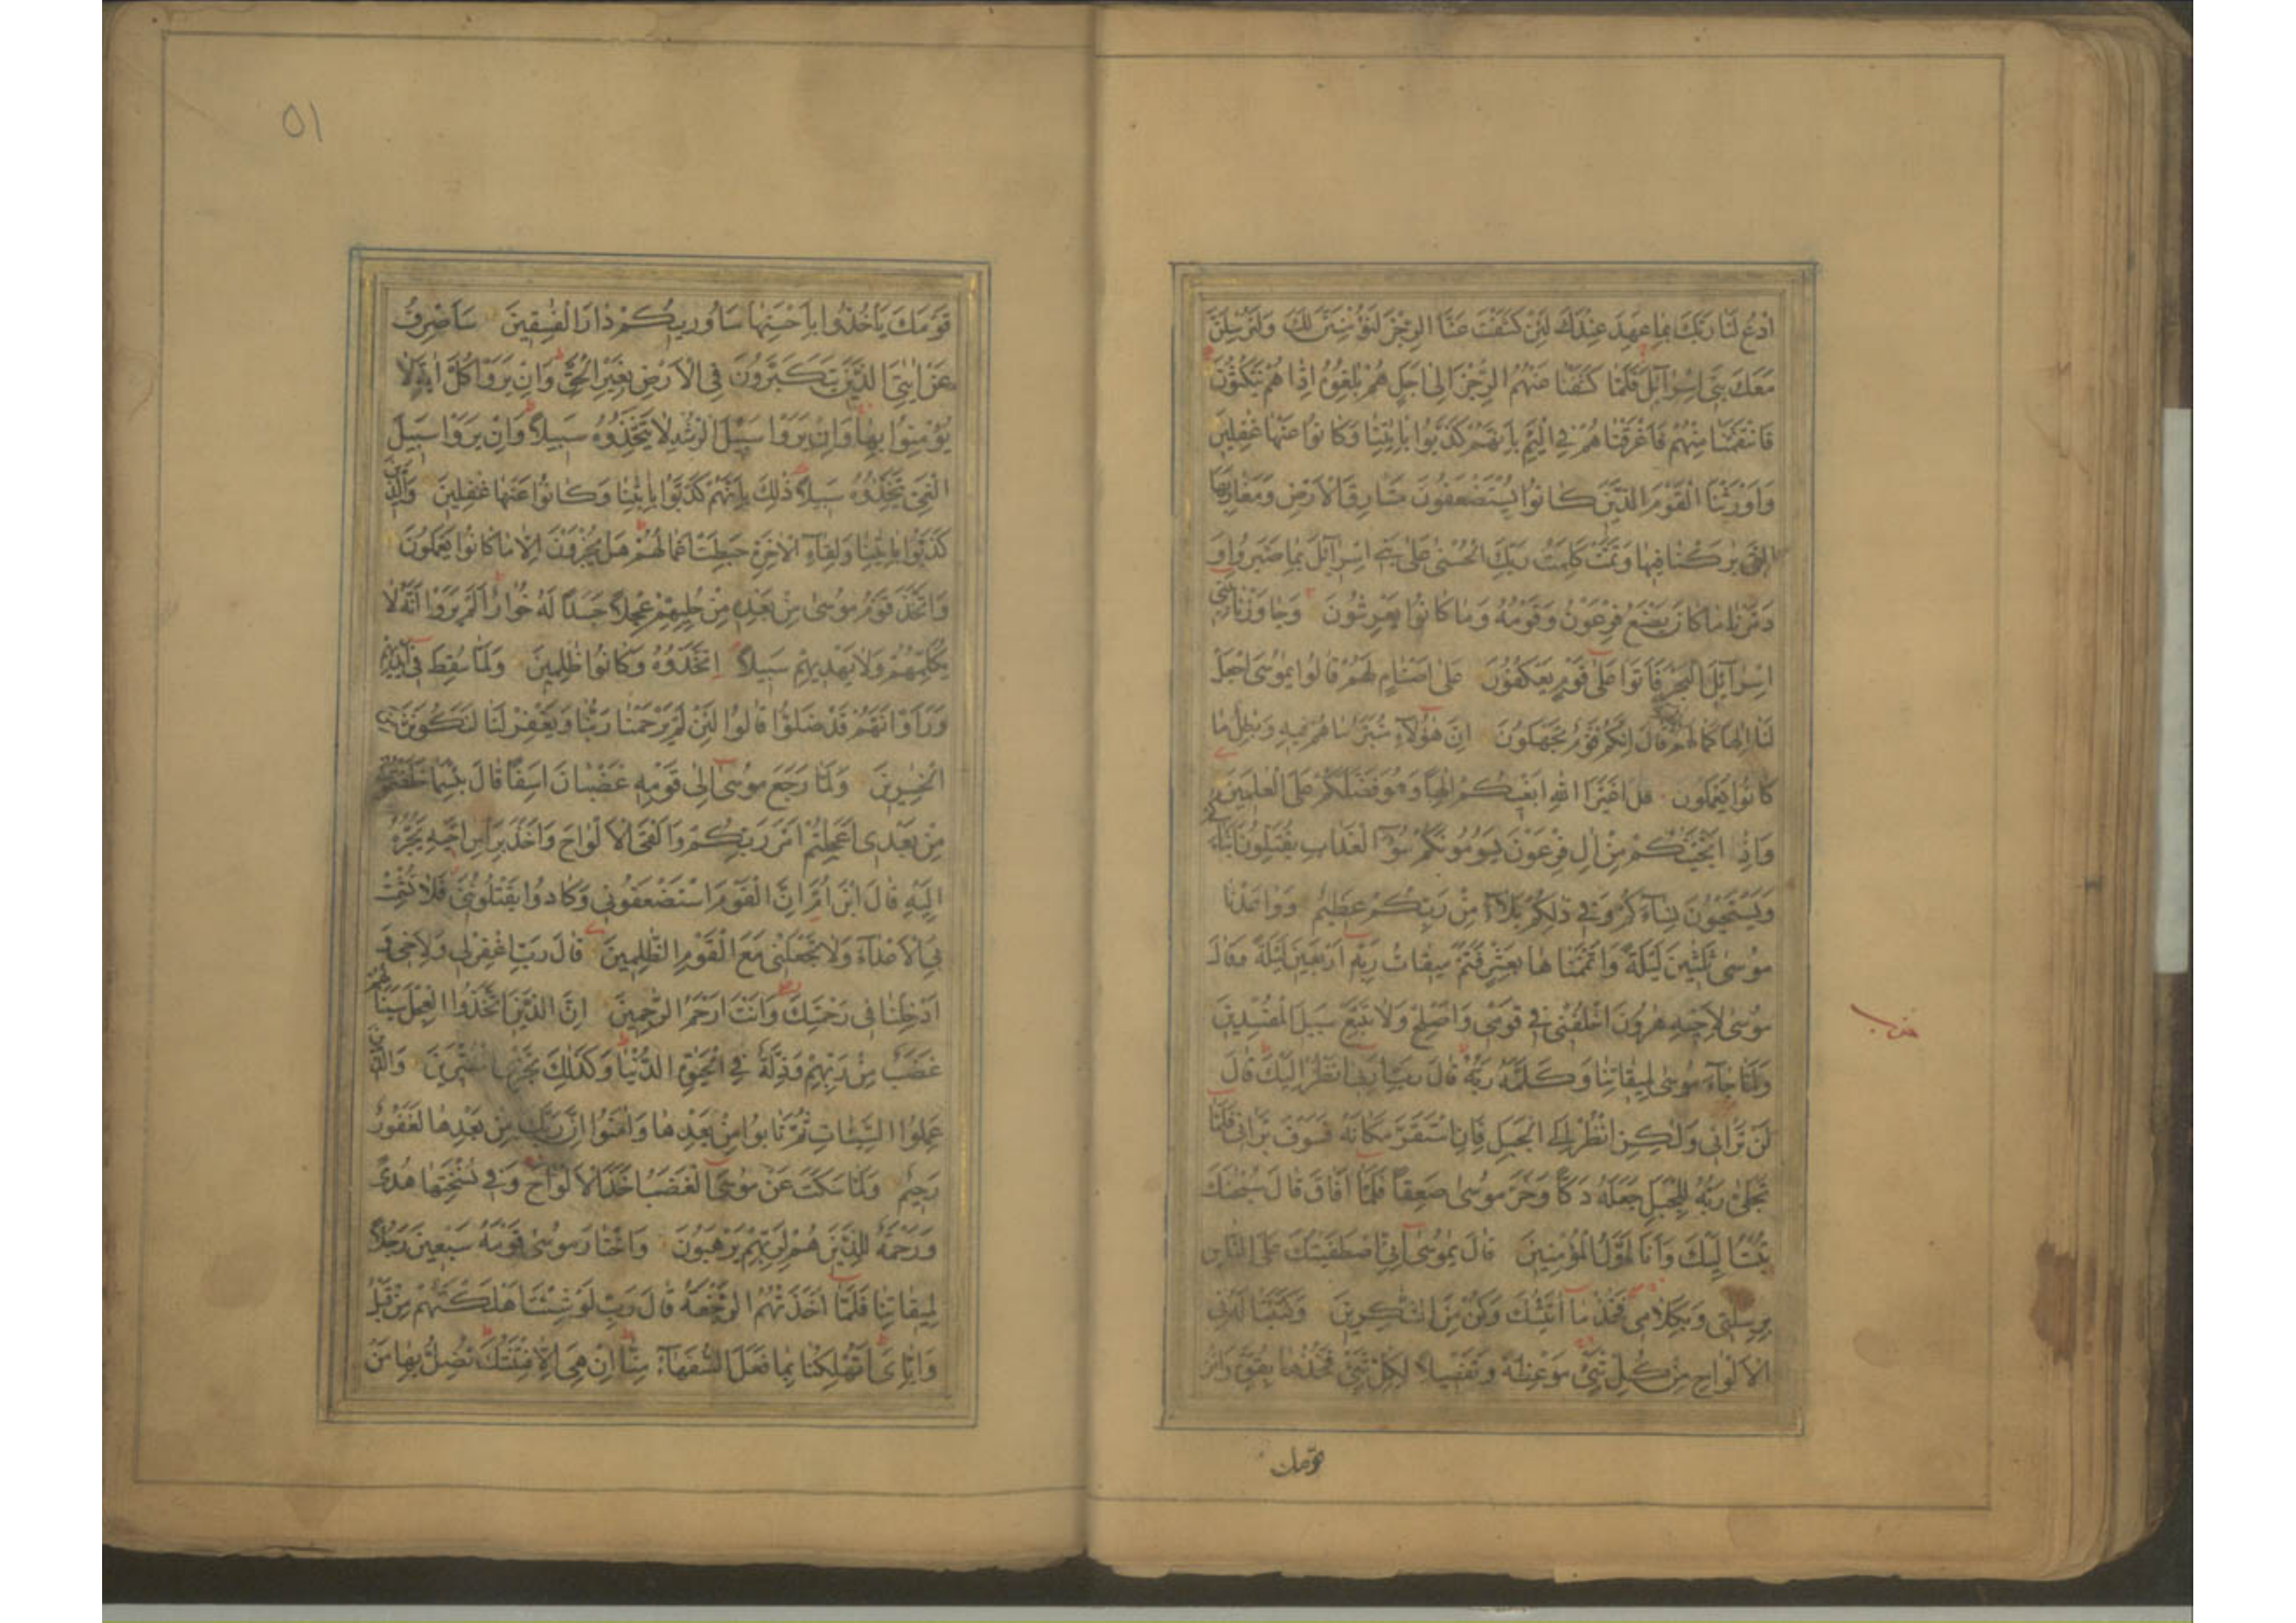 ادْعُ لَنَا رَبَّكَ بِمَا عَهِدَ عِنْدَكَ لَئِنْ كَشَفْتَ عَنَّا الرِّجْزَ لَنُؤْمِنَنَّ لَكَ وَلَنُرْسِلَنَّ
مَعَكَ بَنِي اِسْرَآئِلَ فَلَمَّا كَشَفْنَا عَنْهُمُ الرِّجْزَ اِلٰى اَجَلٍ هُمْ بٰلِغُوهُ اِذَا هُمْ يَنْكُثُونَ
فَانْتَقَمْنَا مِنْهُمْ فَاَغْرَقْنَاهُمْ فِي الْيَمِّ بِاَنَّهُمْ كَذَّبُوا بِاٰيٰتِنَا وَكَانُوا عَنْهَا غٰفِلِينَ
وَاَوْرَثْنَا الْقَوْمَ الَّذِينَ كَانُوا يُسْتَضْعَفُونَ مَشَارِقَ الْاَرْضِ وَمَغَارِبَهَا
الَّتِي بٰرَكْنَا فِيهَا وَتَمَّتْ كَلِمَتُ رَبِّكَ الْحُسْنٰى عَلٰى بَنِي اِسْرَآئِلَ بِمَا صَبَرُوا وَ
دَمَّرْنَا مَا كَانَ يَصْنَعُ فِرْعَوْنُ وَقَوْمُهُ وَمَا كَانُوا يَعْرِشُونَ وَجَاوَزْنَا بِبَنِي
اِسْرَآئِلَ الْبَحْرَ فَاَتَوْا عَلٰى قَوْمٍ يَعْكُفُونَ عَلٰى اَصْنَامٍ لَهُمْ قَالُوا يٰمُوسَى اجْعَلْ
لَنَا اِلٰهًا كَمَا لَهُمْ قَالَ اِنَّكُمْ قَوْمٌ تَجْهَلُونَ اِنَّ هٰؤُلَآءِ مُتَبَّرٌ مَا هُمْ فِيهِ وَبٰطِلٌ مَا
كَانُوا يَعْمَلُونَ قَالَ اَغَيْرَ اللهِ اَبْغِيكُمْ اِلٰهًا وَهُوَ فَضَّلَكُمْ عَلَى الْعٰلَمِينَ
وَاِذْ اَنْجَيْنٰكُمْ مِنْ اٰلِ فِرْعَوْنَ يَسُومُونَكُمْ سُوٓءَ الْعَذَابِ يُقَتِّلُونَ اَبْنَآءَكُمْ
وَيَسْتَحْيُونَ نِسَآءَكُمْ وَفِي ذٰلِكُمْ بَلَآءٌ مِنْ رَبِّكُمْ عَظِيمٌ وَوٰاعَدْنَا
مُوسٰى ثَلٰثِينَ لَيْلَةً وَاَتْمَمْنَاهَا بِعَشْرٍ فَتَمَّ مِيقَاتُ رَبِّهِ اَرْبَعِينَ لَيْلَةً وَقَالَ
مُوسٰى لِاَخِيهِ هٰرُونَ اخْلُفْنِي فِي قَوْمِي وَاَصْلِحْ وَلَا تَتَّبِعْ سَبِيلَ الْمُفْسِدِينَ
وَلَمَّا جَآءَ مُوسٰى لِمِيقَاتِنَا وَكَلَّمَهُ رَبُّهُ قَالَ رَبِّ اَرِنِي اَنْظُرْ اِلَيْكَ قَالَ
لَنْ تَرَانِي وَلٰكِنِ انْظُرْ اِلَى الْجَبَلِ فَاِنِ اسْتَقَرَّ مَكَانَهُ فَسَوْفَ تَرَانِي فَلَمَّا
تَجَلّٰى رَبُّهُ لِلْجَبَلِ جَعَلَهُ دَكًّا وَخَرَّ مُوسٰى صَعِقًا فَلَمَّا اَفَاقَ قَالَ سُبْحٰنَكَ
تُبْتُ اِلَيْكَ وَاَنَا اَوَّلُ الْمُؤْمِنِينَ قَالَ يٰمُوسٰى اِنِّي اصْطَفَيْتُكَ عَلَى النَّاسِ
بِرِسٰلٰتِي وَبِكَلَامِي فَخُذْ مَا اٰتَيْتُكَ وَكُنْ مِنَ الشّٰكِرِينَ وَكَتَبْنَا لَهُ فِي
الْاَلْوَاحِ مِنْ كُلِّ شَيْءٍ مَوْعِظَةً وَتَفْصِيلًا لِكُلِّ شَيْءٍ فَخُذْهَا بِقُوَّةٍ وَاْمُرْ
قومك
٥١
قَوْمَكَ يَأْخُذُوا بِاَحْسَنِهَا سَاُورِيكُمْ دَارَ الْفٰسِقِينَ سَاَصْرِفُ
عَنْ اٰيٰتِيَ الَّذِينَ يَتَكَبَّرُونَ فِي الْاَرْضِ بِغَيْرِ الْحَقِّ وَاِنْ يَرَوْا كُلَّ اٰيَةٍ لَا
يُؤْمِنُوا بِهَا وَاِنْ يَرَوْا سَبِيلَ الرُّشْدِ لَا يَتَّخِذُوهُ سَبِيلًا وَاِنْ يَرَوْا سَبِيلَ
الْغَيِّ يَتَّخِذُوهُ سَبِيلًا ذٰلِكَ بِاَنَّهُمْ كَذَّبُوا بِاٰيٰتِنَا وَكَانُوا عَنْهَا غٰفِلِينَ وَالَّذِينَ
كَذَّبُوا بِاٰيٰتِنَا وَلِقَآءِ الْاٰخِرَةِ حَبِطَتْ اَعْمَالُهُمْ هَلْ يُجْزَوْنَ اِلَّا مَا كَانُوا يَعْمَلُونَ
وَاتَّخَذَ قَوْمُ مُوسٰى مِنْ بَعْدِهِ مِنْ حُلِيِّهِمْ عِجْلًا جَسَدًا لَهُ خُوَارٌ اَلَمْ يَرَوْا اَنَّهُ لَا
يُكَلِّمُهُمْ وَلَا يَهْدِيهِمْ سَبِيلًا اِتَّخَذُوهُ وَكَانُوا ظٰلِمِينَ وَلَمَّا سُقِطَ فِي اَيْدِيهِمْ
وَرَاَوْا اَنَّهُمْ قَدْ ضَلُّوا قَالُوا لَئِنْ لَمْ يَرْحَمْنَا رَبُّنَا وَيَغْفِرْ لَنَا لَنَكُونَنَّ مِنَ
الْخٰسِرِينَ وَلَمَّا رَجَعَ مُوسٰى اِلٰى قَوْمِهِ غَضْبَانَ اَسِفًا قَالَ بِئْسَمَا خَلَفْتُمُونِي
مِنْ بَعْدِي اَعَجِلْتُمْ اَمْرَ رَبِّكُمْ وَاَلْقَى الْاَلْوَاحَ وَاَخَذَ بِرَاْسِ اَخِيهِ يَجُرُّهُ
اِلَيْهِ قَالَ ابْنَ اُمَّ اِنَّ الْقَوْمَ اسْتَضْعَفُونِي وَكَادُوا يَقْتُلُونَنِي فَلَا تُشْمِتْ
بِيَ الْاَعْدَآءَ وَلَا تَجْعَلْنِي مَعَ الْقَوْمِ الظّٰلِمِينَ قَالَ رَبِّ اغْفِرْ لِي وَلِاَخِي وَ
اَدْخِلْنَا فِي رَحْمَتِكَ وَاَنْتَ اَرْحَمُ الرّٰحِمِينَ اِنَّ الَّذِينَ اتَّخَذُوا الْعِجْلَ سَيَنَالُهُمْ
غَضَبٌ مِنْ رَبِّهِمْ وَذِلَّةٌ فِي الْحَيٰوةِ الدُّنْيَا وَكَذٰلِكَ نَجْزِي الْمُفْتَرِينَ وَالَّذِينَ
عَمِلُوا السَّيِّئَاتِ ثُمَّ تَابُوا مِنْ بَعْدِهَا وَاٰمَنُوا اِنَّ رَبَّكَ مِنْ بَعْدِهَا لَغَفُورٌ
رَحِيمٌ وَلَمَّا سَكَتَ عَنْ مُوسَى الْغَضَبُ اَخَذَ الْاَلْوَاحَ وَفِي نُسْخَتِهَا هُدًى
وَرَحْمَةٌ لِلَّذِينَ هُمْ لِرَبِّهِمْ يَرْهَبُونَ وَاخْتَارَ مُوسٰى قَوْمَهُ سَبْعِينَ رَجُلًا
لِمِيقَاتِنَا فَلَمَّا اَخَذَتْهُمُ الرَّجْفَةُ قَالَ رَبِّ لَوْ شِئْتَ اَهْلَكْتَهُمْ مِنْ قَبْلُ
وَاِيَّايَ اَتُهْلِكُنَا بِمَا فَعَلَ السُّفَهَآءُ مِنَّا اِنْ هِيَ اِلَّا فِتْنَتُكَ تُضِلُّ بِهَا مَنْ